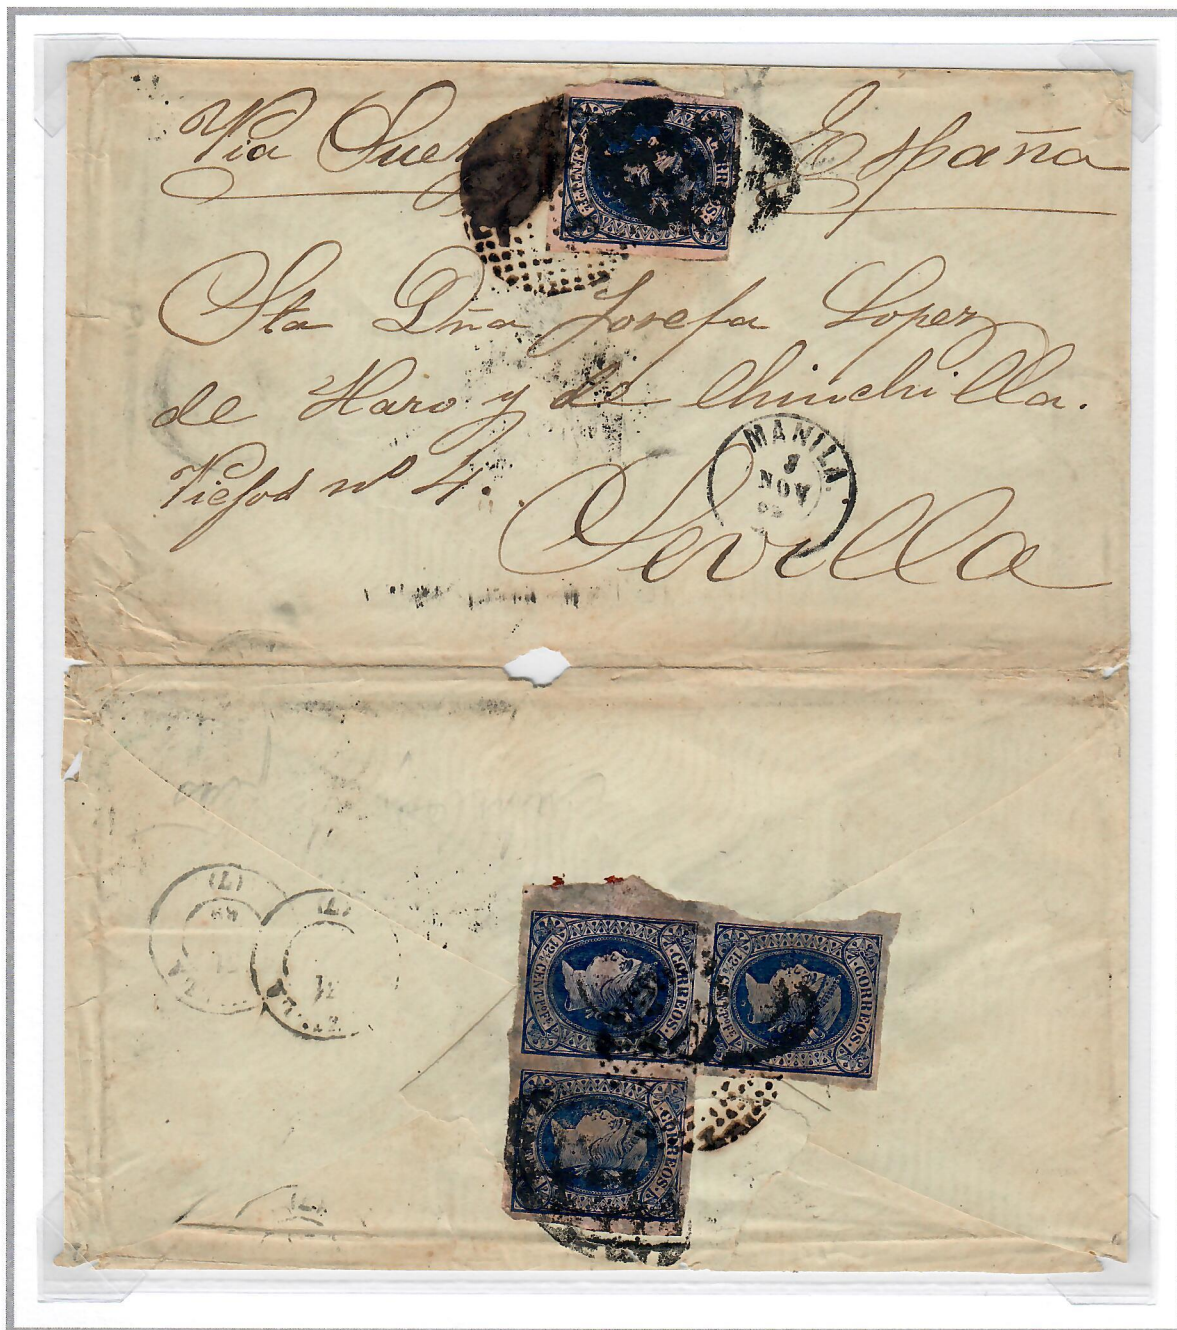 Via Suez España
Sta Dña Josefa Lopez
de Haro y de Chinchilla.
Viejos nº 4.
Sevilla
MANILA
NOV
CORREOS
CORREOS
12 4/8 CENT
CORREOS
12 4/8
CORREOS
(7)
(7)